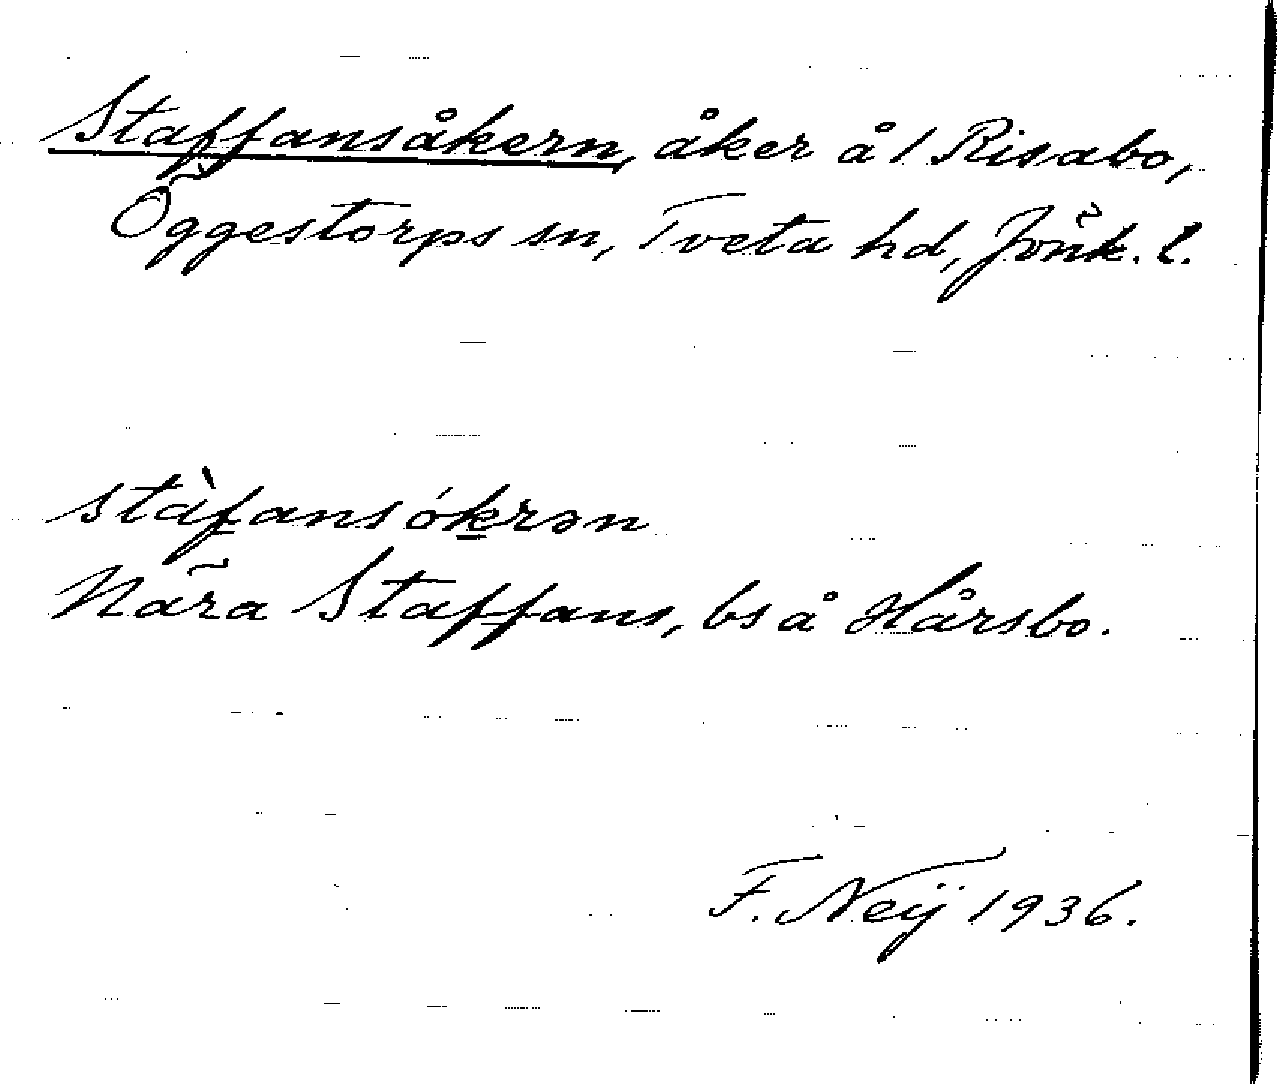 Staffansåkern, åker å 1 Risabo,
Öggestorps sn, Tveta hd, Jönk. l.
stàfansókrən
Nära Staffans, bs å Hårsbo.
F. Neij 1936.